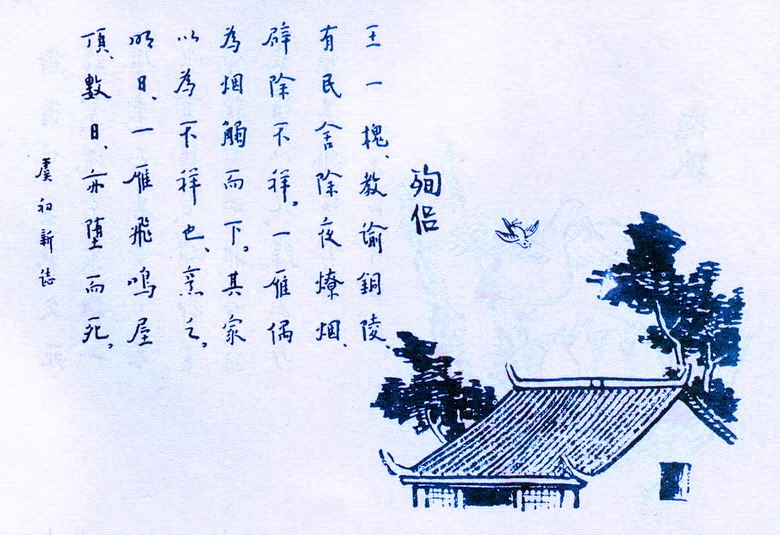 殉侶
王一槐、教諭銅陵、
有民舍除夜燎烟、
辟除不祥。一雁偶
為烟觸而下。其家
以為不祥也、烹之。
明日、一雁飛鳴屋
頂、數日、亦墮而死。
虞初新誌